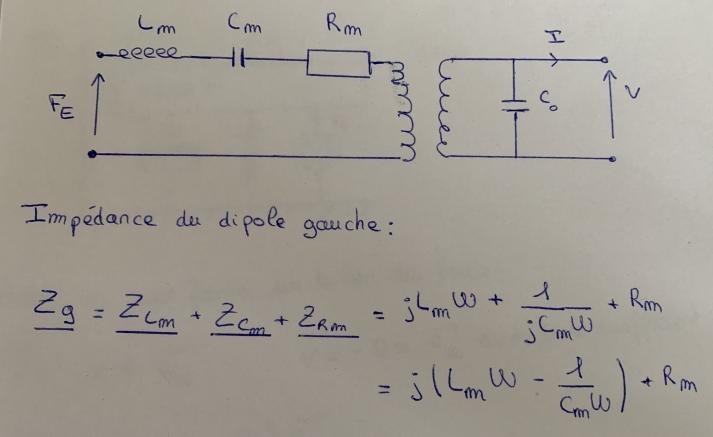 Lm Cm Rm I
FE C₀ V
Impédance du dipole gauche:
Zg = ZLm + ZCm + ZRm = jLmω + 1/(jCmω) + Rm
= j(Lmω - 1/(Cmω)) + Rm